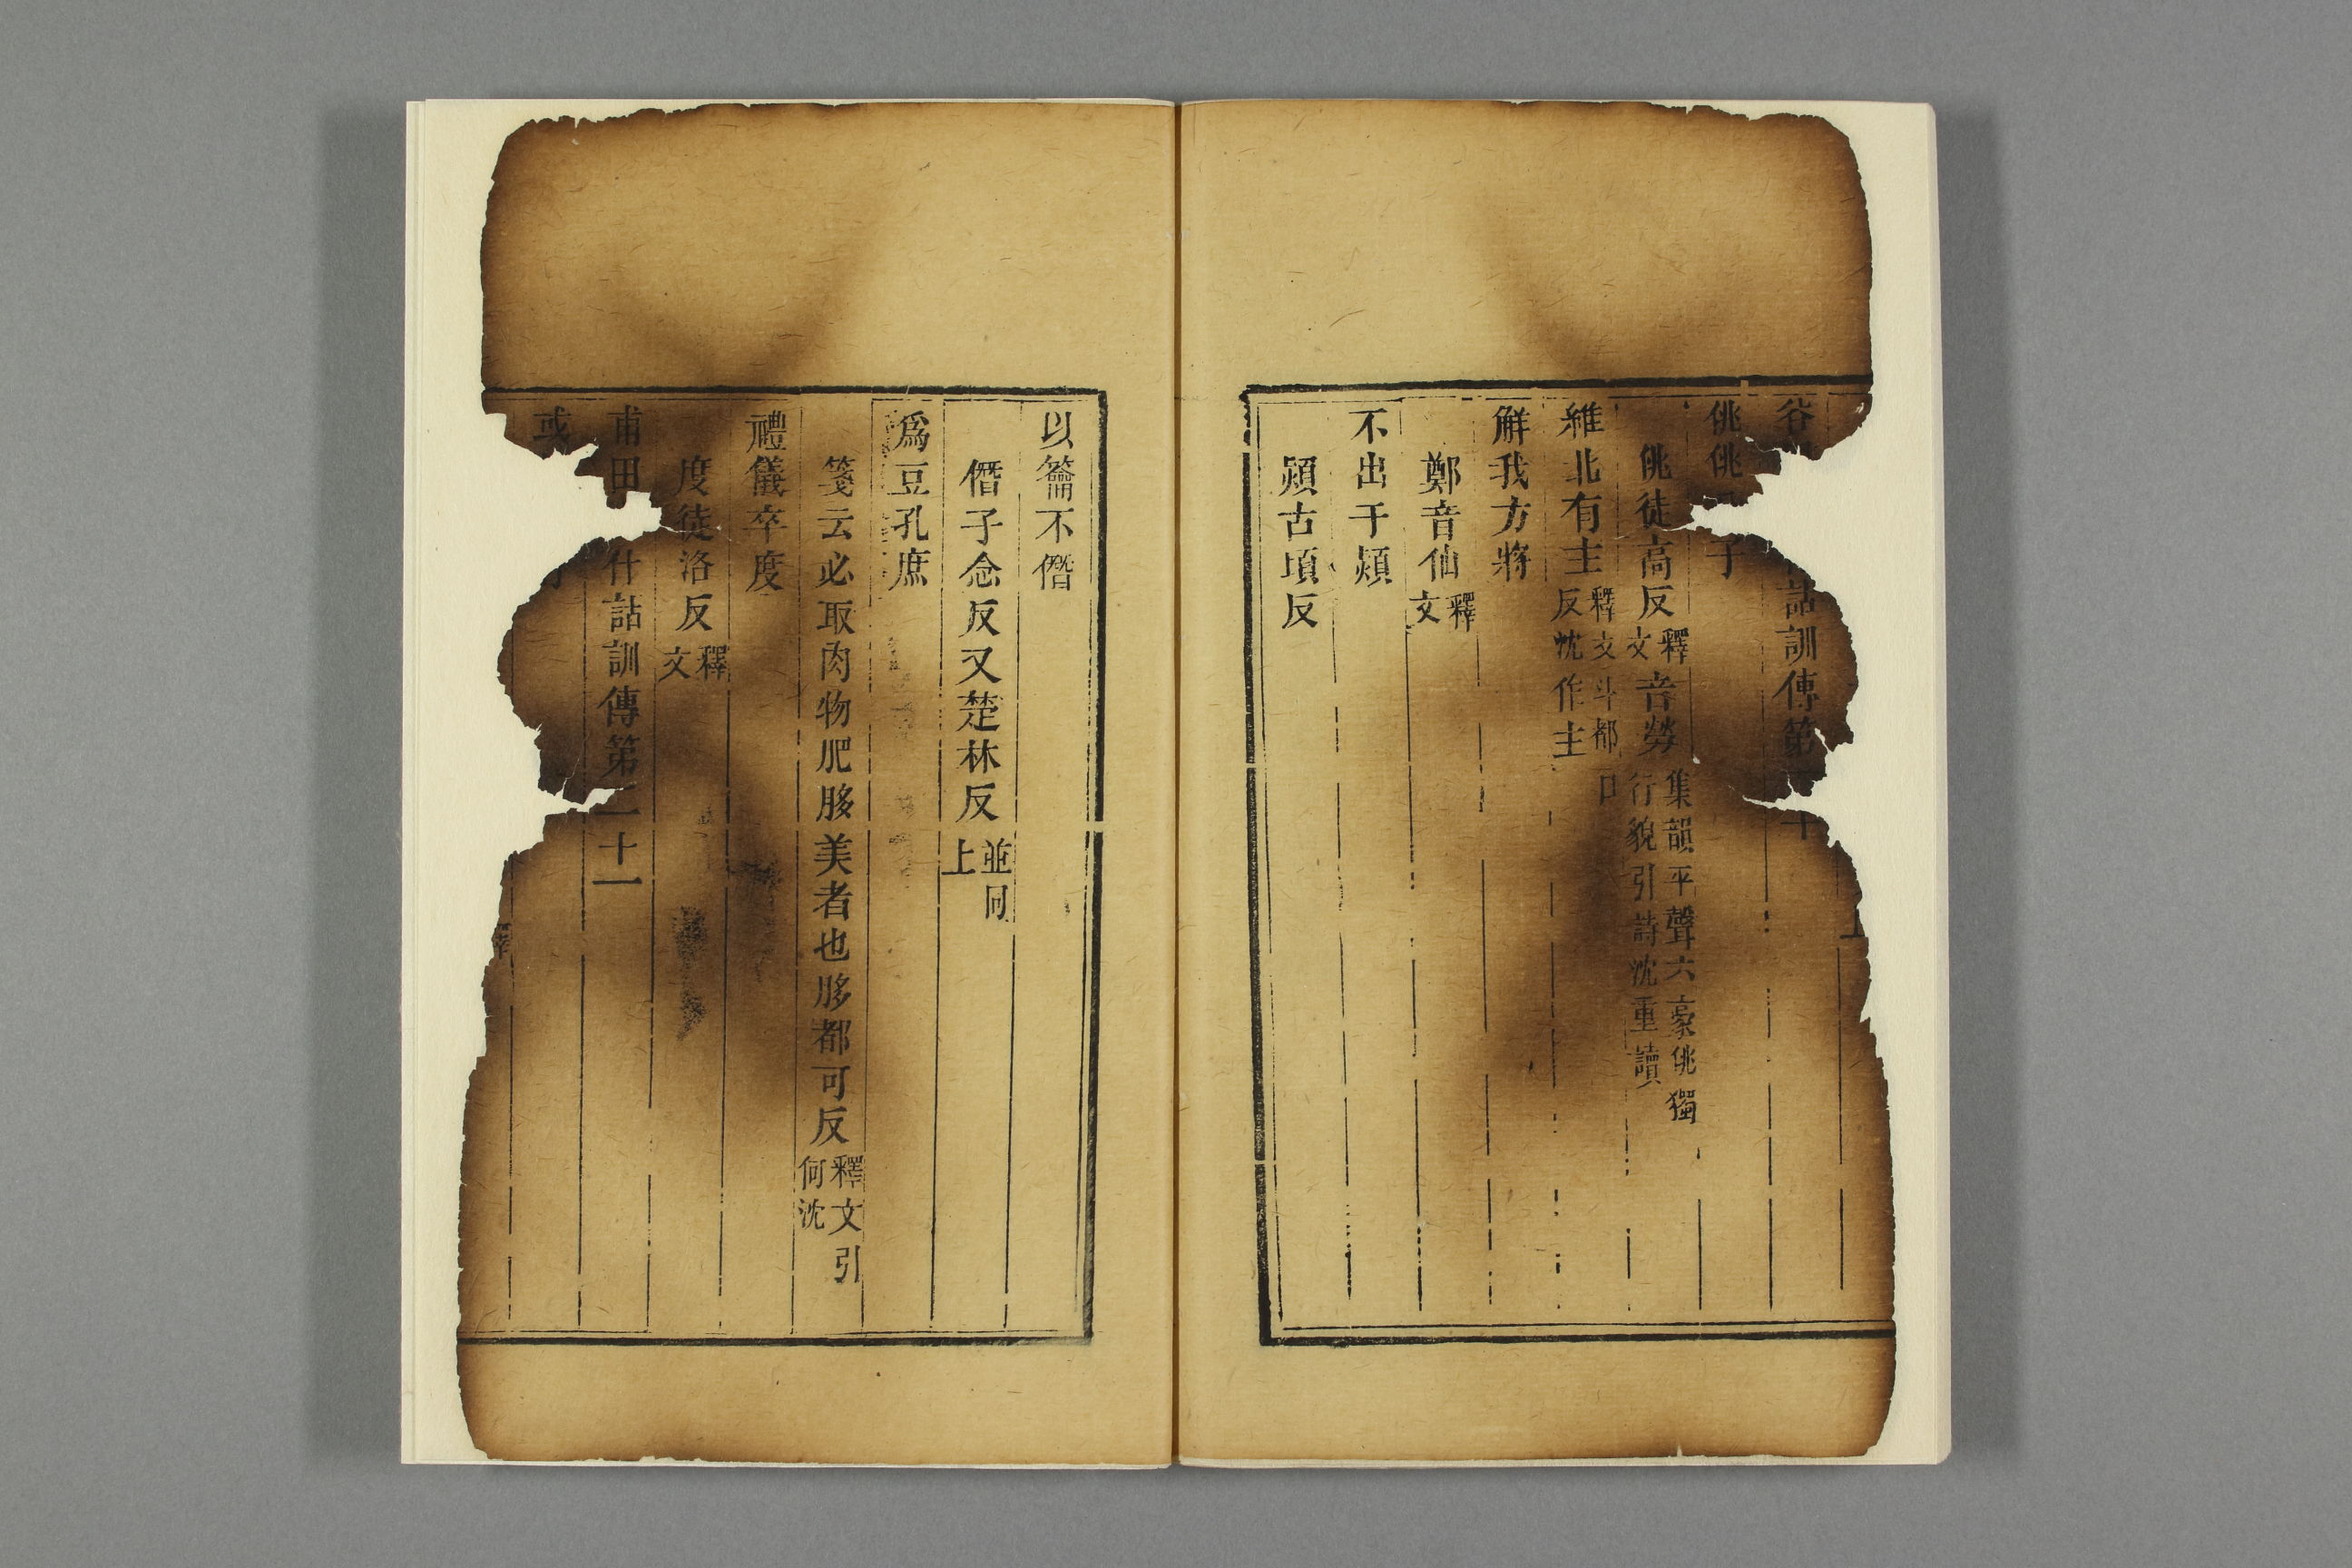 谷
詁訓傳第
十
佻佻
子
佻徒高反
釋
文
音勞
集韻平聲六豪佻獨
行貌引詩沈重讀
維北有
主
釋文斗都口
反沈作主
解我方將
鄭音仙
釋
文
不出于熲
熲古頃反
以籥不僭
僭子念反又楚林反
並同
上
爲豆孔庶
箋云必取肉物肥胗美者也胗都可反
釋文引
何沈
禮儀卒度
度徒洛反
釋
文
甫田
什詁訓傳第二十一
或